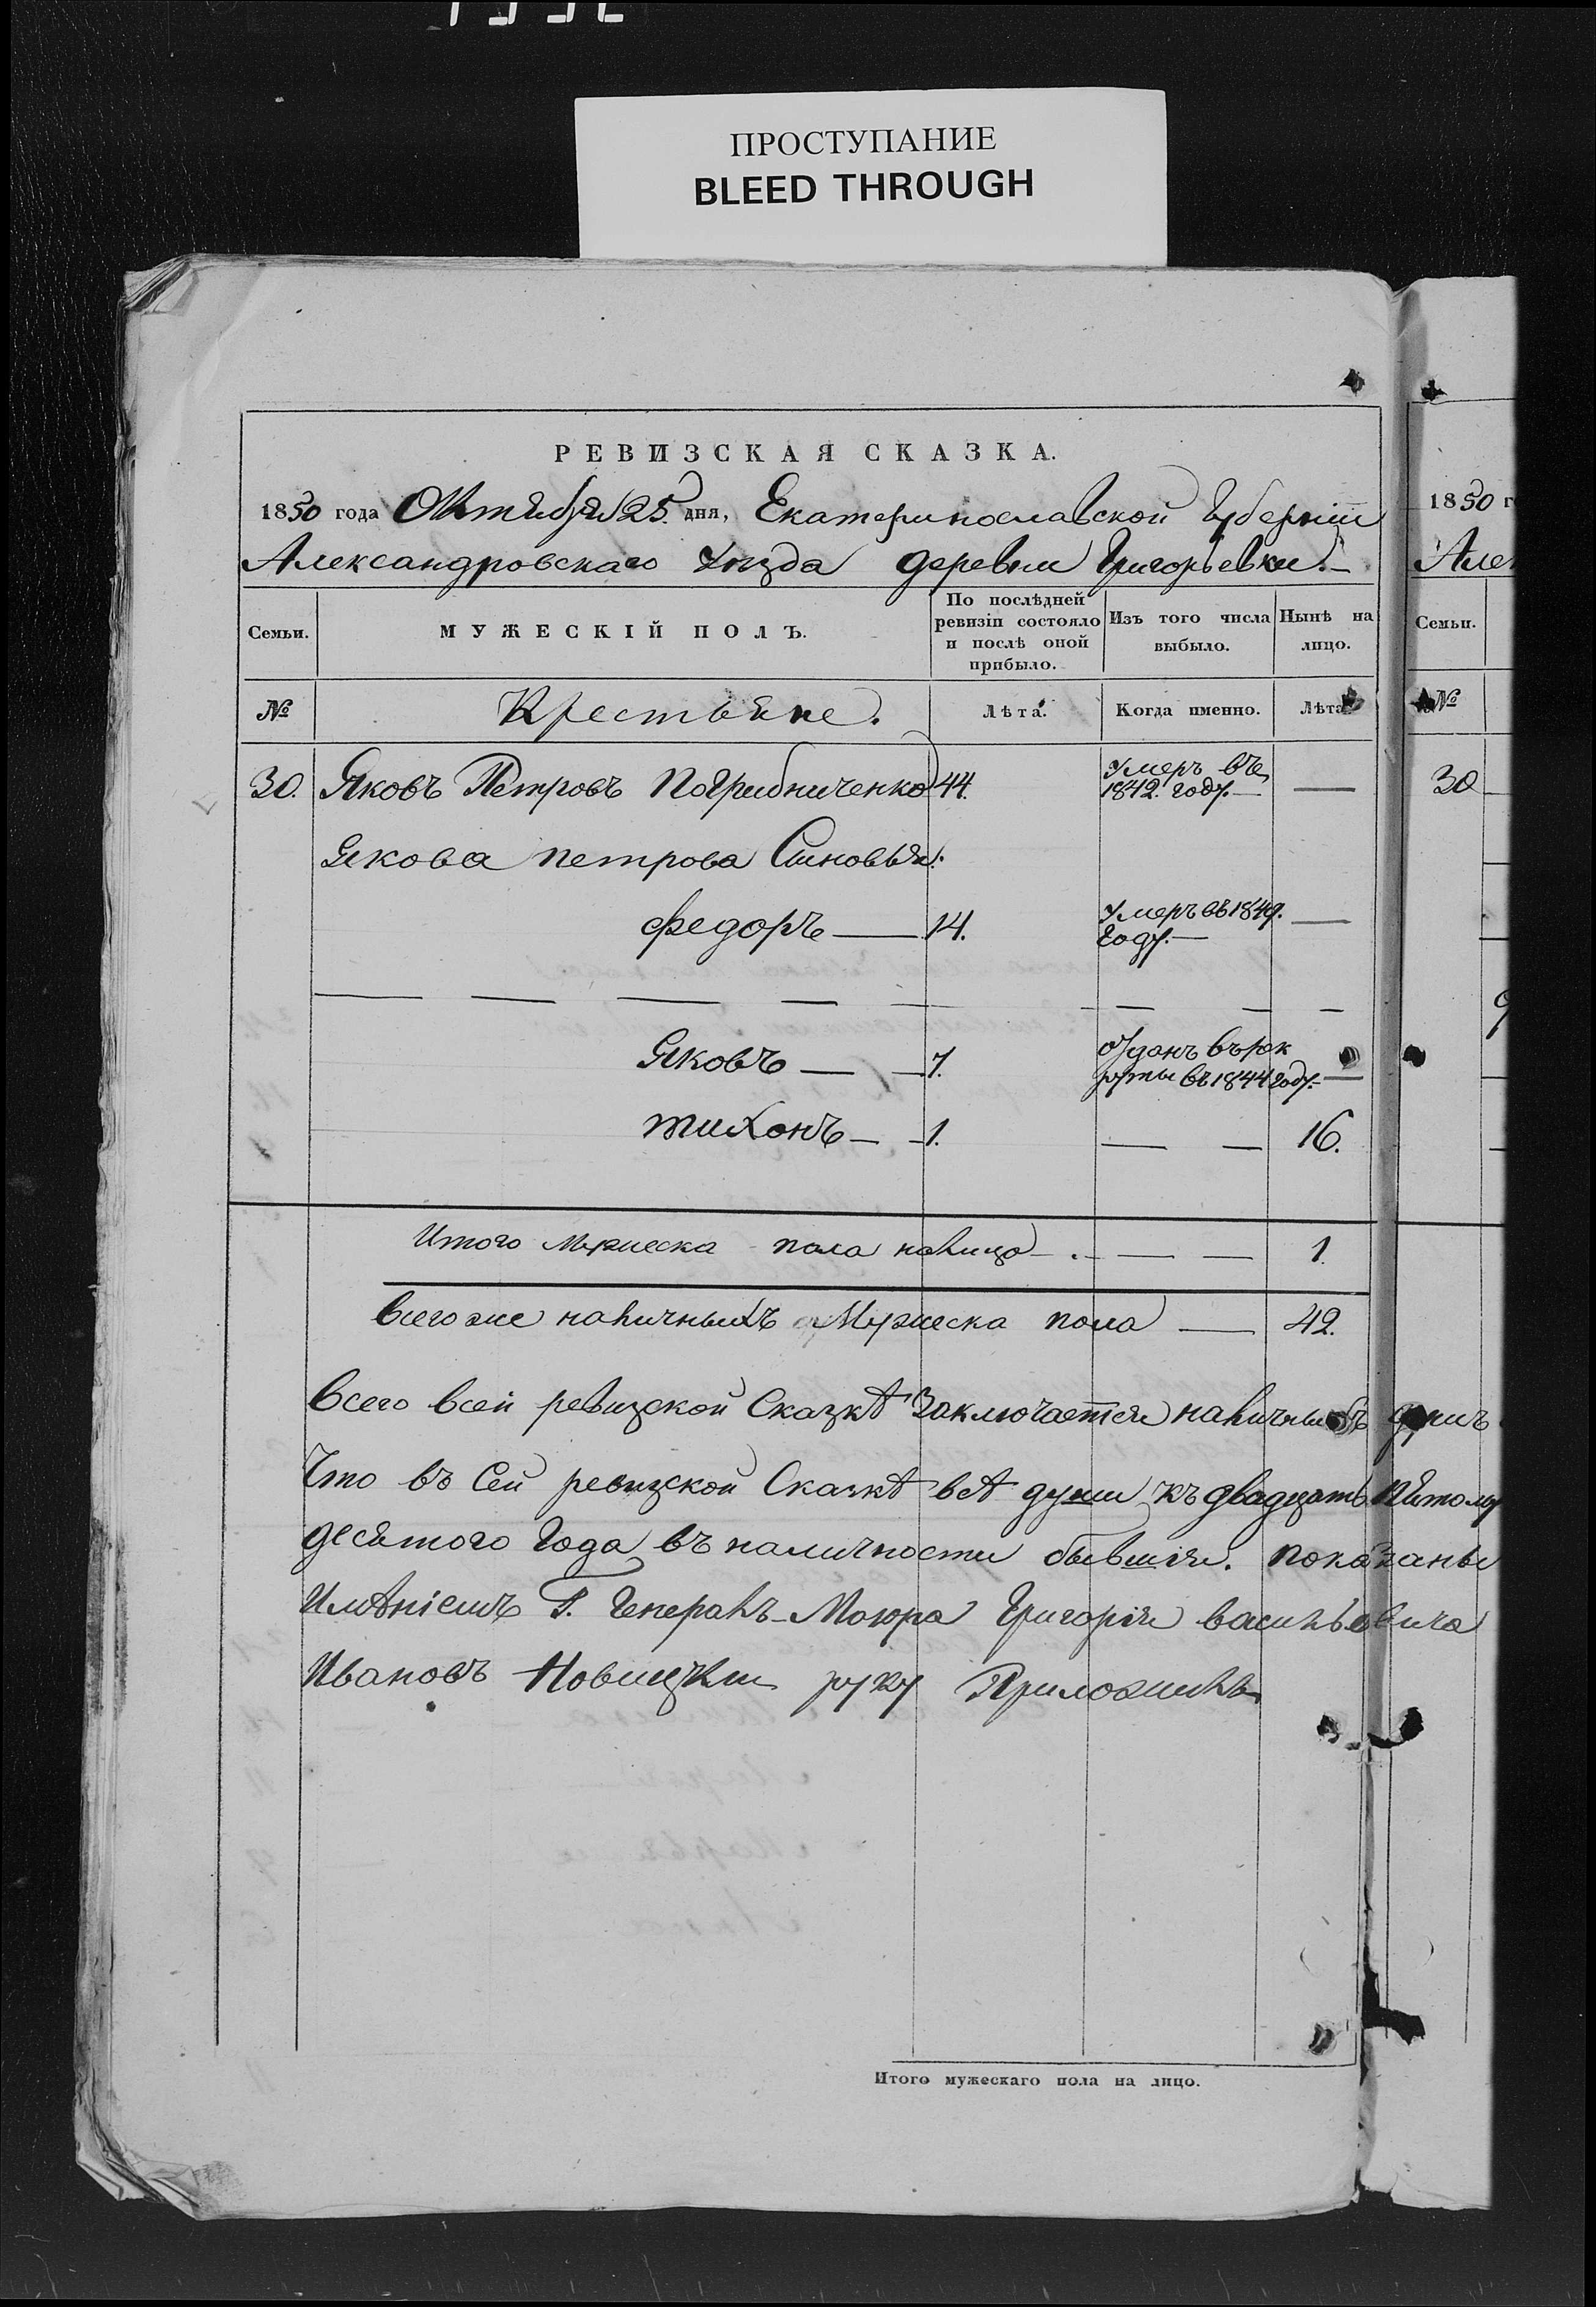 ПРОСТУПАНИЕ
BLEED THROUGH
РЕВИЗСКАЯ СКАЗКА.
1850 года Октября 25. дня, Екатеринославской Губерніи
Александровскаго Уѣзда деревни Григорьевки.
Семьи.
МУЖЕСКІЙ ПОЛЪ.
По послѣдней ревизіи состояло и послѣ оной прибыло.
Изъ того числа выбыло.
Нынѣ на лицо.
№
Крестьяне.
Лѣта.
Когда именно.
Лѣта.
30. Яковъ Петровъ Погрибниченко 44. Умеръ въ 1842. году. —
Якова Петрова Сыновья:
Федоръ — 14. Умеръ въ 1849. году. —
Яковъ — 7. отданъ въ рек руты въ 1844 году. —
Тихонъ — 1. — — 16.
Итого Мужеска пола налицо — — 1.
Всего же наличныхъ Мужеска пола — 42.
Всего всей ревизской Сказкѣ Заключается наличныхъ душъ
Что въ Сей ревизской Сказкѣ всѣ души къ двадцать Пятому
десятого Года въ наличности бывшія. показаны
Имѣніемъ Г. Генералъ-Маюра Григорія Васильевича
Ивановъ Новицкій руку Приложилъ
Итого мужескаго пола на лицо.
1850 г
Алек
Семьи.
№
30